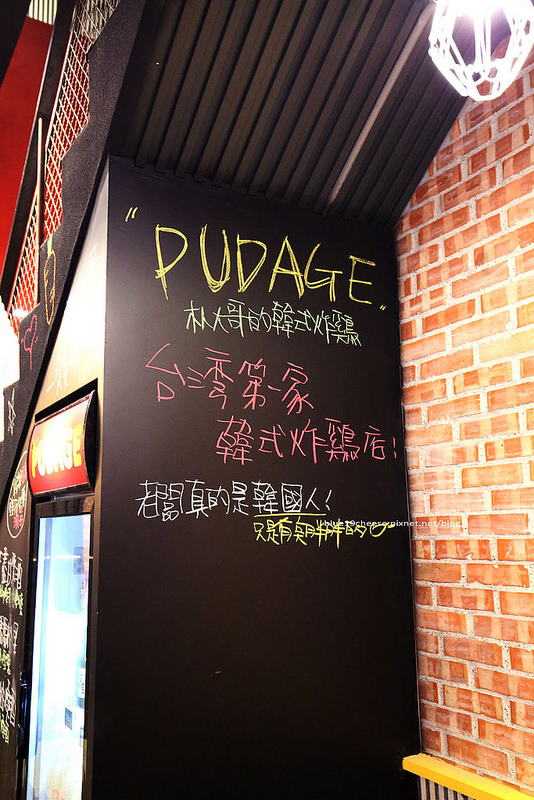 "PUDAGE"
朴大哥的韓式炸鷄
台灣第一家
韓式炸鷄店!
老闆真的是韓國人!
只是有臭月半月半的
blue19cheese.pixnet.net/blog
PUDAGE